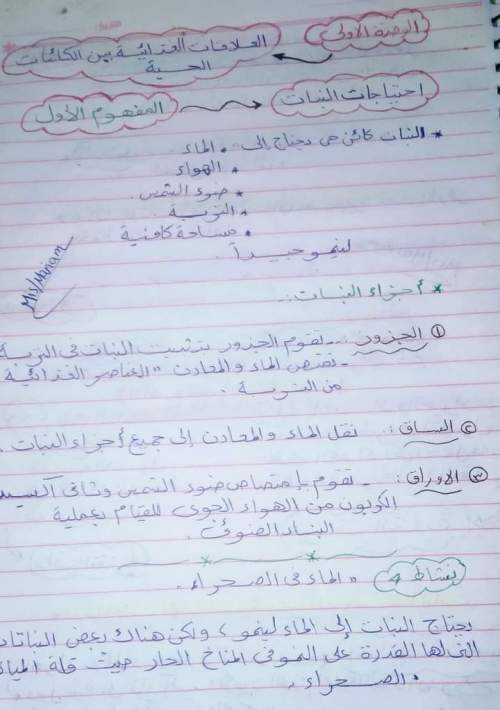 الوحدة الأولى
العلاقات الغذائية بين الكائنات
الحية
المفهوم الأول
احتياجات النبات
* النبات كائن حى يحتاج إلى • الماء
• الهواء
• ضوء الشمس
• التربة
• مساحة كافية
لينمو جيداً.
Mis/Mariam
* أجزاء النبات:-
① الجذور :- تقوم الجذور بتثبيت النبات فى التربة
- تمتص الماء والمعادن "العناصر الغذائية
من التربة.
② الساق: نقل الماء والمعادن إلى جميع أجزاء النبات.
③ الأوراق: - تقوم بامتصاص ضوء الشمس وثانى أكسيد
الكربون من الهواء الجوى للقيام بعملية
البناء الضوئى.
نشاط 4 " الماء فى الصحراء.
يحتاج النبات إلى الماء لينمو، ولكن هناك بعض النباتات
التى لها القدرة على النمو فى المناخ الحار حيث قلة المياه
• الصحراء.